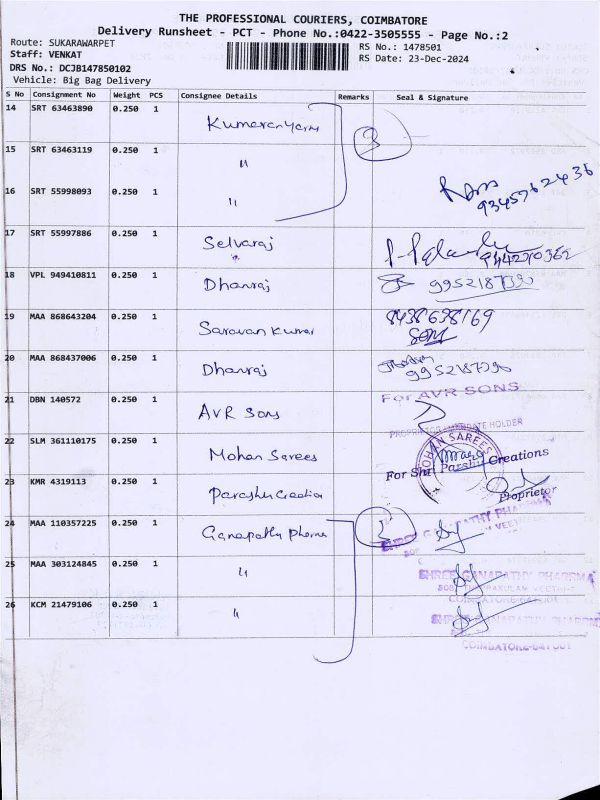 THE PROFESSIONAL COURIERS, COIMBATORE
Delivery Runsheet - PCT - Phone No.:0422-3505555 - Page No.:2
Route: SUKARAWARPET
RS No.: 1478501
Staff: VENKAT
RS Date: 23-Dec-2024
DRS No.: DCJB147850102
Vehicle: Big Bag Delivery
S No Consignment No Weight PCS Consignee Details Remarks Seal & Signature
14 SRT 63463890 0.250 1 Kumaran Yarns 3
15 SRT 63463119 0.250 1 "
16 SRT 55998093 0.250 1 " 9345762436
17 SRT 55997886 0.250 1 Selvaraj
18 VPL 949410811 0.250 1 Dhanraj
19 MAA 868643204 0.250 1 Saravan Kumar 8438638169
20 MAA 868437006 0.250 1 Dhanraj
21 DBN 140572 0.250 1 AVR Sons For AVR SONS
22 SLM 361110175 0.250 1 Mohan Sarees MOHAN SAREES
23 KMR 4319113 0.250 1 Parashu Creation For Shri Parshu Creations
Proprietor
24 MAA 110357225 0.250 1 Ganapathy Pharma SHREE GANAPATHY PHARMA
25 MAA 303124845 0.250 1 " SHREE GANAPATHY PHARMA
26 KCM 21479106 0.250 1 " SHREE GANAPATHY PHARMA
COIMBATORE-641001